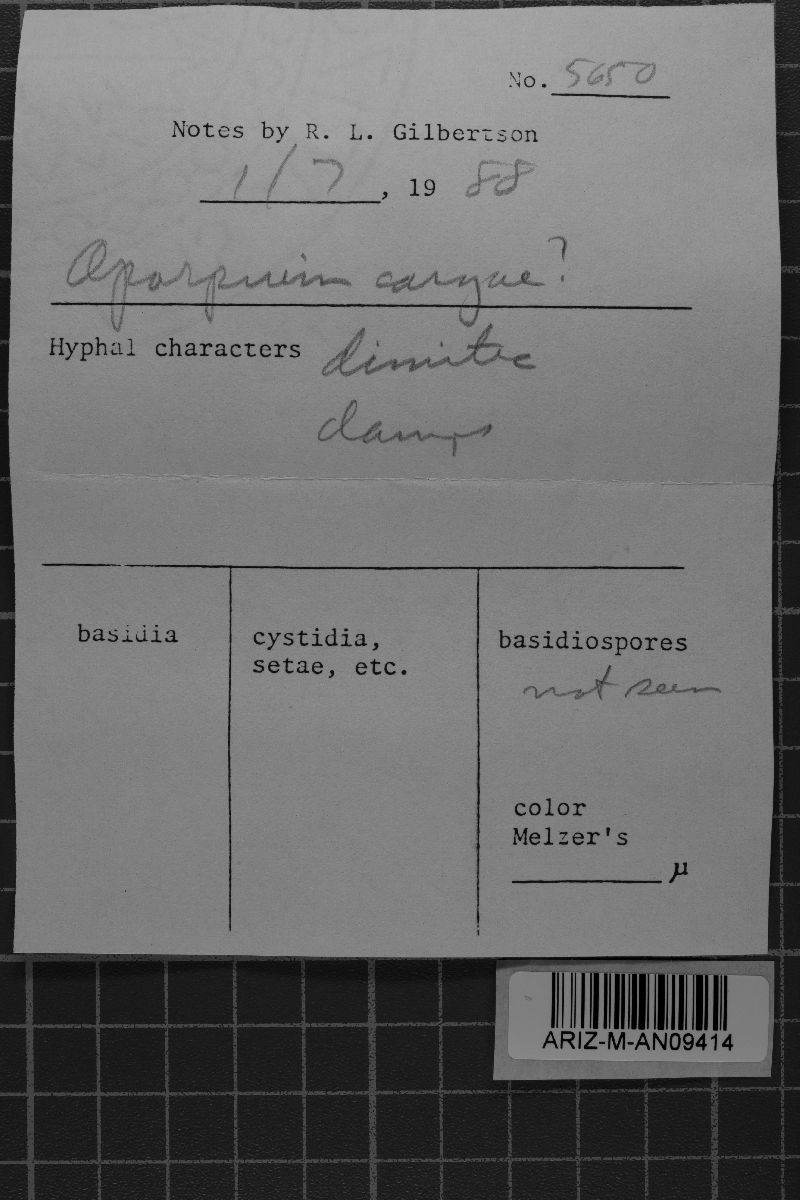 No. 5650
Notes by R. L. Gilbertson
1/7, 19 88
Aporpium caryae?
Hyphal characters dimitic
clamps
basidia
cystidia,
setae, etc.
basidiospores
not seen
color
Melzer's
µ
ARIZ-M-AN09414